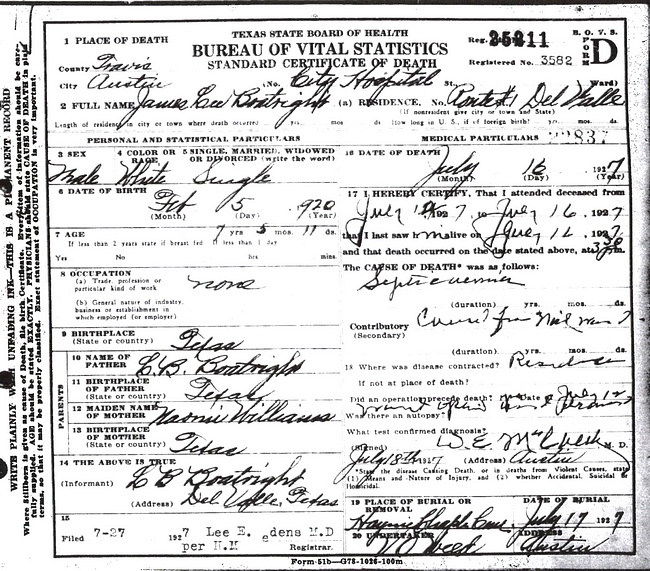 TEXAS STATE BOARD OF HEALTH
BUREAU OF VITAL STATISTICS
STANDARD CERTIFICATE OF DEATH
Reg. 35211
Registered No. 3582
B. O. V. S.
FORM D
1 PLACE OF DEATH
County Travis
City Austin (No. City Hospital St. Ward)
2 FULL NAME James Lee Boatright (a) RESIDENCE, No. Route #1 Del Valle
(If nonresident give city or town and State)
Length of residence in city or town where death occurred yrs. mos. ds. How long in U. S., if of foreign birth? yrs. mos. ds.
PERSONAL AND STATISTICAL PARTICULARS
3 SEX 4 COLOR OR RACE 5 SINGLE, MARRIED, WIDOWED OR DIVORCED (write the word)
Male White Single
6 DATE OF BIRTH
Feb 5 1920
(Month) (Day) (Year)
7 AGE 7 yrs 5 mos. 11 ds.
If less than 2 years state if breast fed If less than 1 day
Yes No hrs. min.
8 OCCUPATION
(a) Trade, profession or particular kind of work none
(b) General nature of industry, business or establishment in which employed (or employer)
9 BIRTHPLACE
(State or country) Texas
PARENTS
10 NAME OF FATHER C. B. Boatright
11 BIRTHPLACE OF FATHER
(State or country) Texas
12 MAIDEN NAME OF MOTHER Naomi Williams
13 BIRTHPLACE OF MOTHER
(State or country) Texas
14 THE ABOVE IS TRUE
(Informant) C B Boatright
(Address) Del Valle, Texas
15
Filed 7-27 1927 Lee E. dens M.D
per H.M Registrar.
MEDICAL PARTICULARS
16 DATE OF DEATH
July 16 1927
(Month) (Day) (Year)
17 I HEREBY CERTIFY, That I attended deceased from
July 1927, to July 16, 1927
that I last saw him alive on July 1927
and that death occurred on the date stated above, at m.
The CAUSE OF DEATH* was as follows:
Septicaemia
(duration) yrs. mos. ds.
Contributory from Nail
(Secondary)
(duration) yrs. mos. ds.
18 Where was disease contracted? Residence
if not at place of death?
Did an operation precede death? Date of July
Was there an autopsy?
What test confirmed diagnosis?
(Signed) W. E. M. D.
July 18th 1927 (Address) Austin
*State the disease Causing Death, or in deaths from Violent Causes, state (1) Means and Nature of Injury, and (2) whether Accidental, Suicidal or Homicidal.
19 PLACE OF BURIAL OR REMOVAL DATE OF BURIAL
Haynie Chapel Cem. July 17 1927
20 UNDERTAKER ADDRESS
V. O. Weed Austin
Form 51b—G78-1026-100m
WRITE PLAINLY WITH UNFADING INK—THIS IS A PERMANENT RECORD
Where stillborn is given as cause of Death, file birth Certificate. Every item of information should be carefully supplied. AGE should be stated EXACTLY. PHYSICIANS should state CAUSE OF DEATH in plain terms, so that it may be properly classified. Exact statement of OCCUPATION is very important.